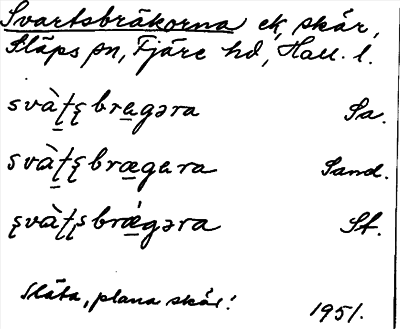 Svartsbråkorna ek, skär,
Släps sn, Fjäre hd, Hall. l.
svàṭș bragəra Sa.
svàṭș brægara Sand.
șvàṭș brǽgəra St.
Släta, plana skär!
1951.